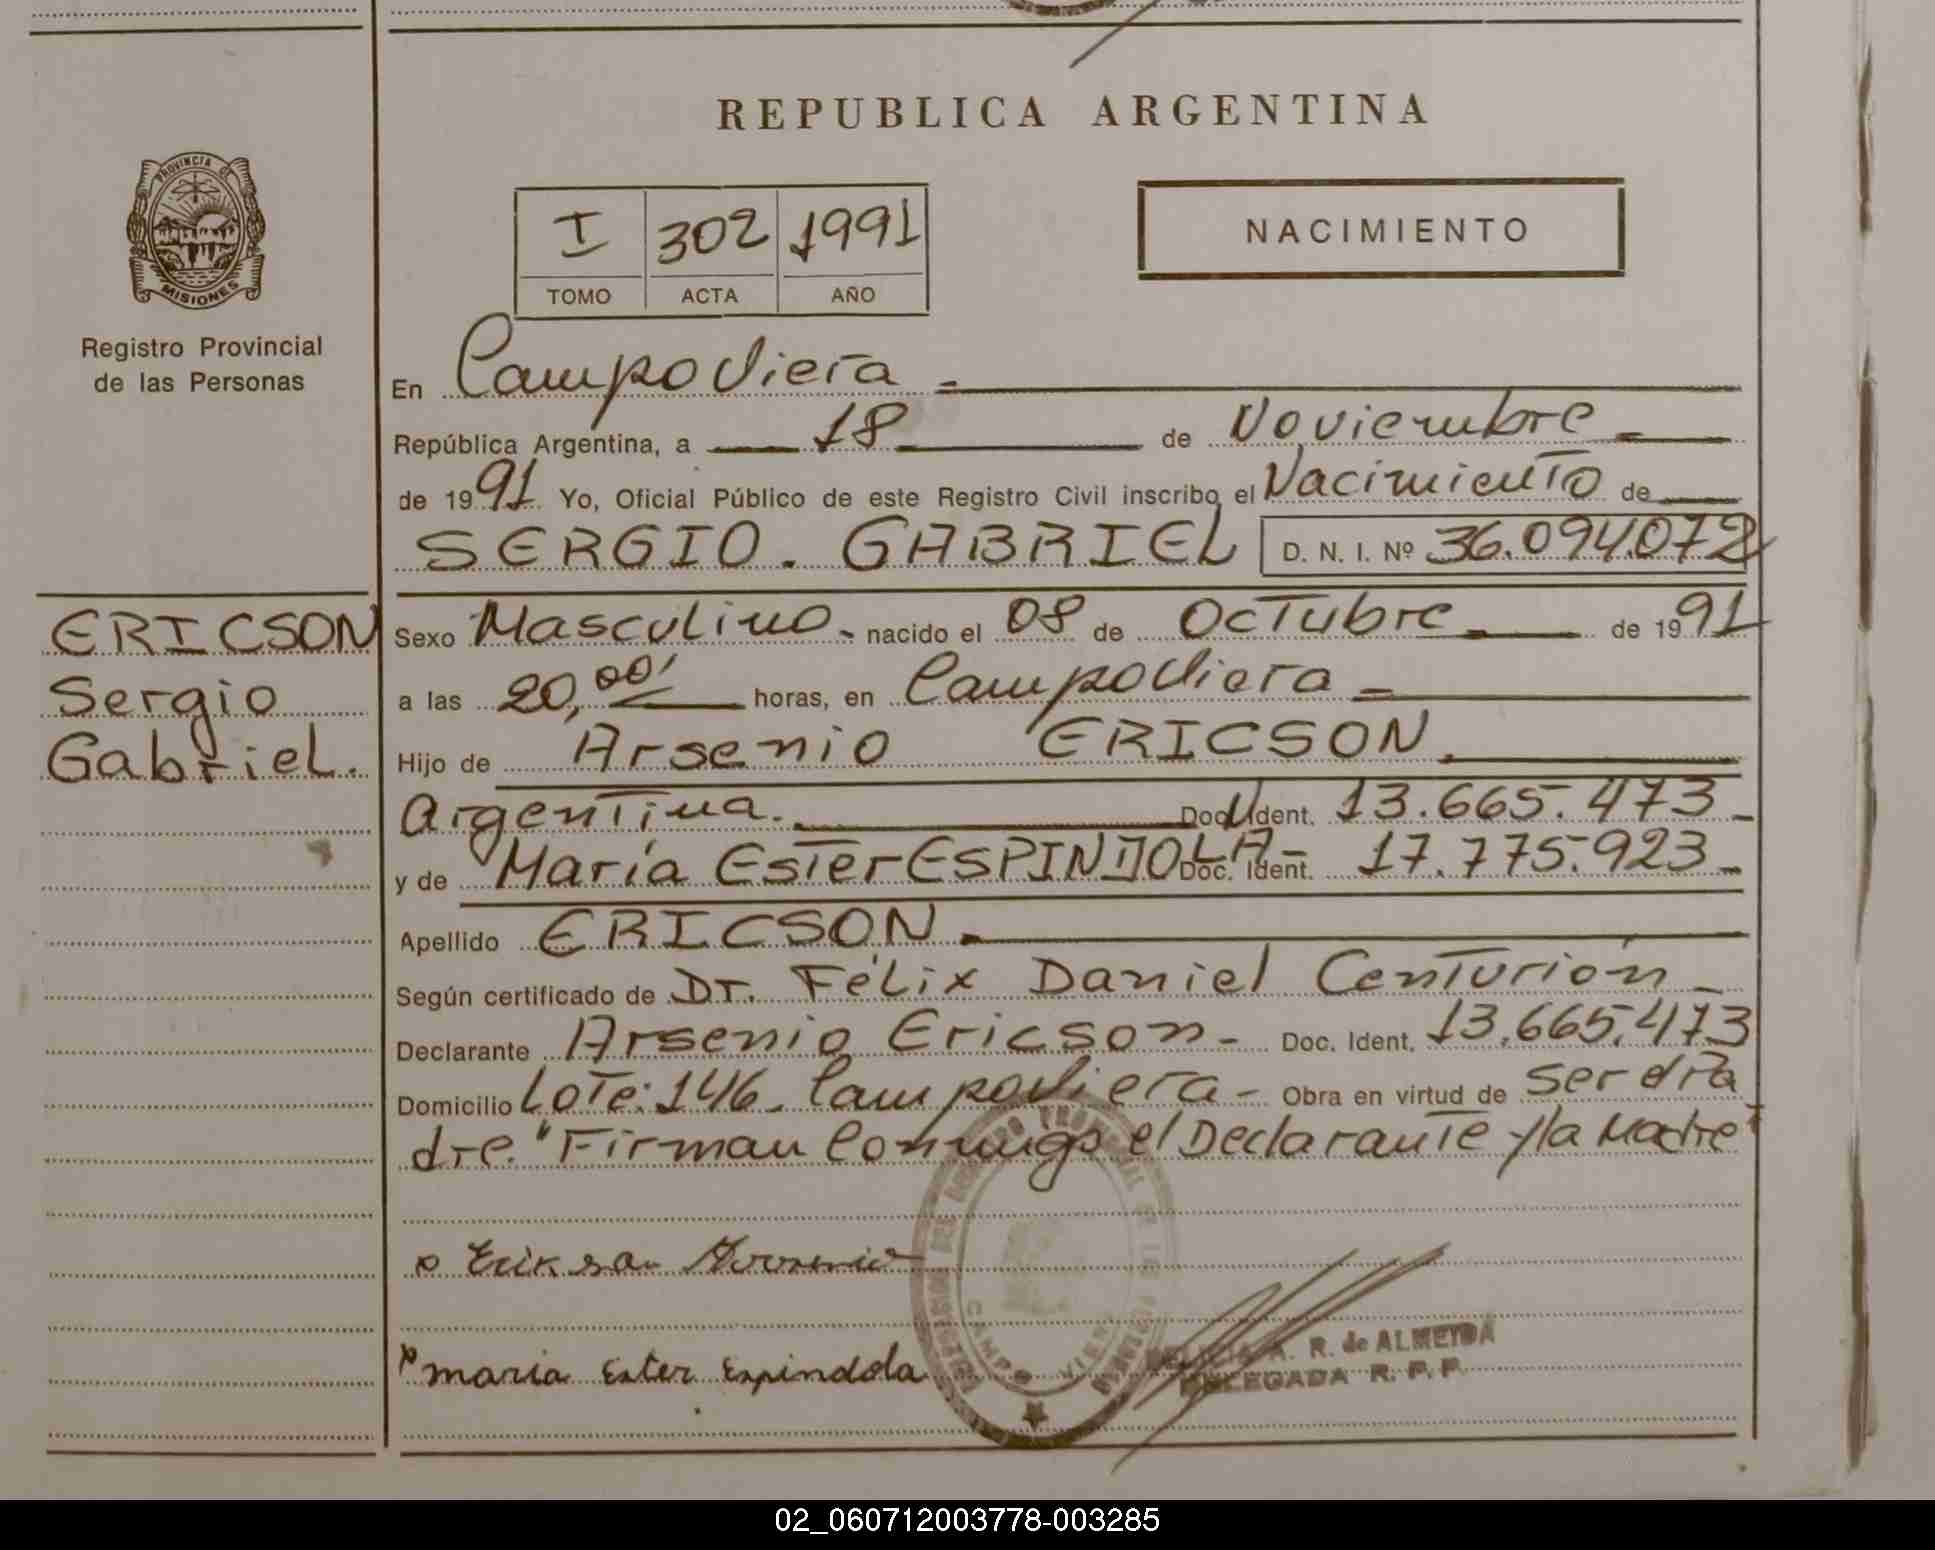 REPUBLICA ARGENTINA
PROVINCIA DE
MISIONES
Registro Provincial
de las Personas
I 302 1991
TOMO ACTA AÑO
NACIMIENTO
En Campo Viera -
República Argentina, a 18 de Noviembre -
de 1991 Yo, Oficial Público de este Registro Civil inscribo el Nacimiento de
SERGIO. GABRIEL D. N. I. Nº 36.094.072
ERICSON
Sergio
Gabriel.
Sexo Masculino - nacido el 08 de Octubre - de 1991
a las 20,00' horas, en Campo Viera -
Hijo de Arsenio ERICSON.
Argentina. Doc. Ident. 13.665.473 -
y de María Ester ESPINDOLA - Doc. Ident. 17.775.923 -
Apellido ERICSON. -
Según certificado de Dr. Félix Daniel Centurión -
Declarante Arsenio Ericson - Doc. Ident. 13.665.473
Domicilio Lote: 146. Campo Viera - Obra en virtud de ser el Pa
dre. "Firman Conmigo el Declarante y la Madre"
Erikson Arsenio
maria Ester Espindola
CAMPO VIERA
A. R. de ALMEIDA
DELEGADA R. P. P.
02_060712003778-003285